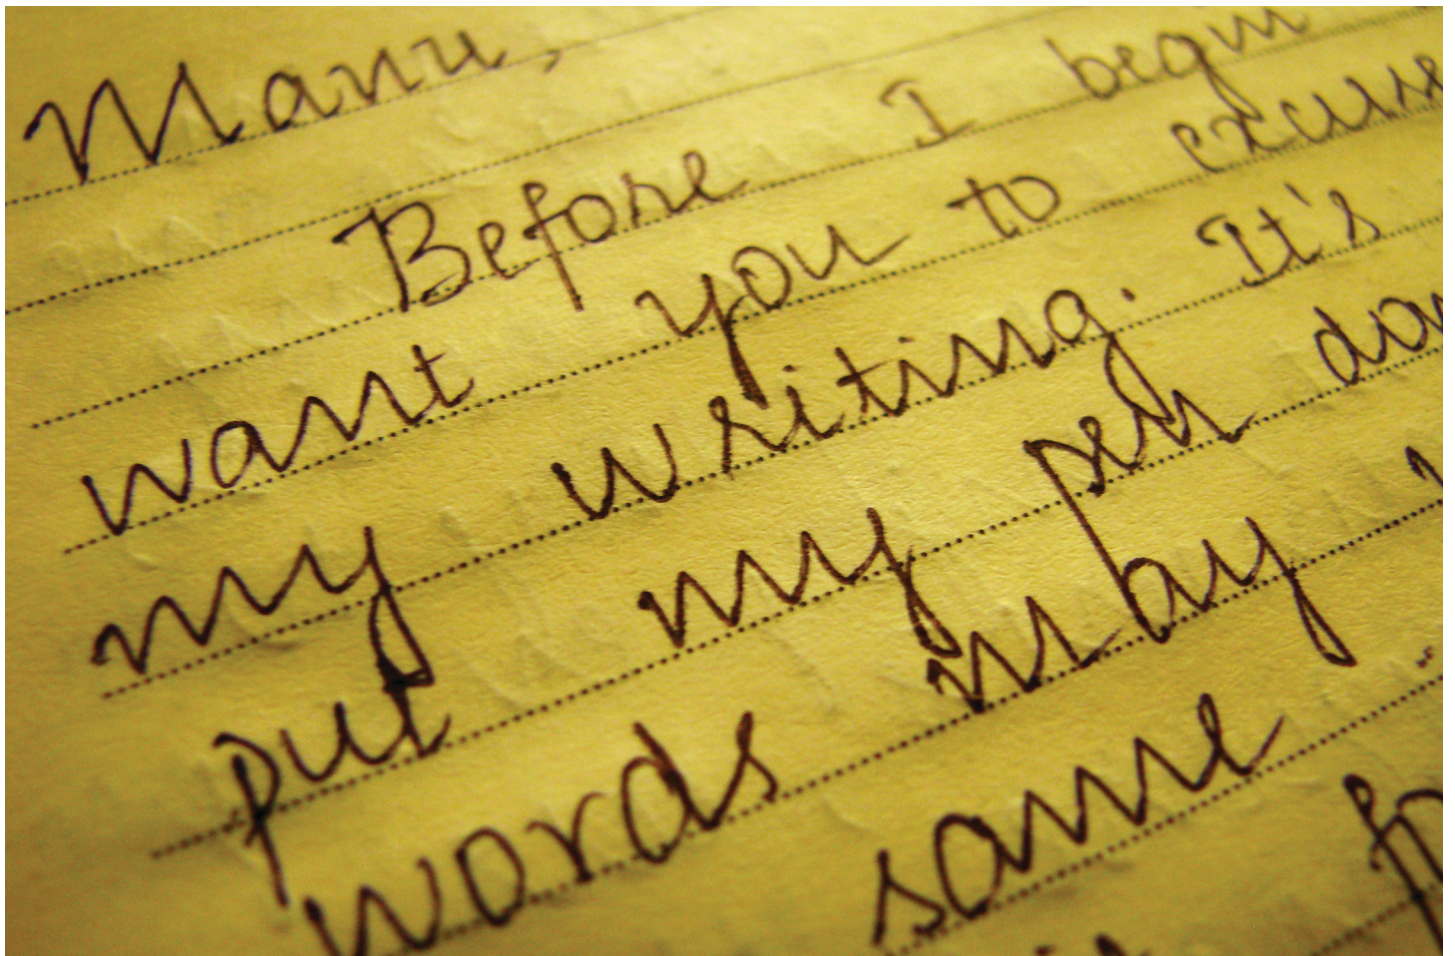 Manu,
Before I begin
want you to excuse
my writing. It's
put my pen
words may
same